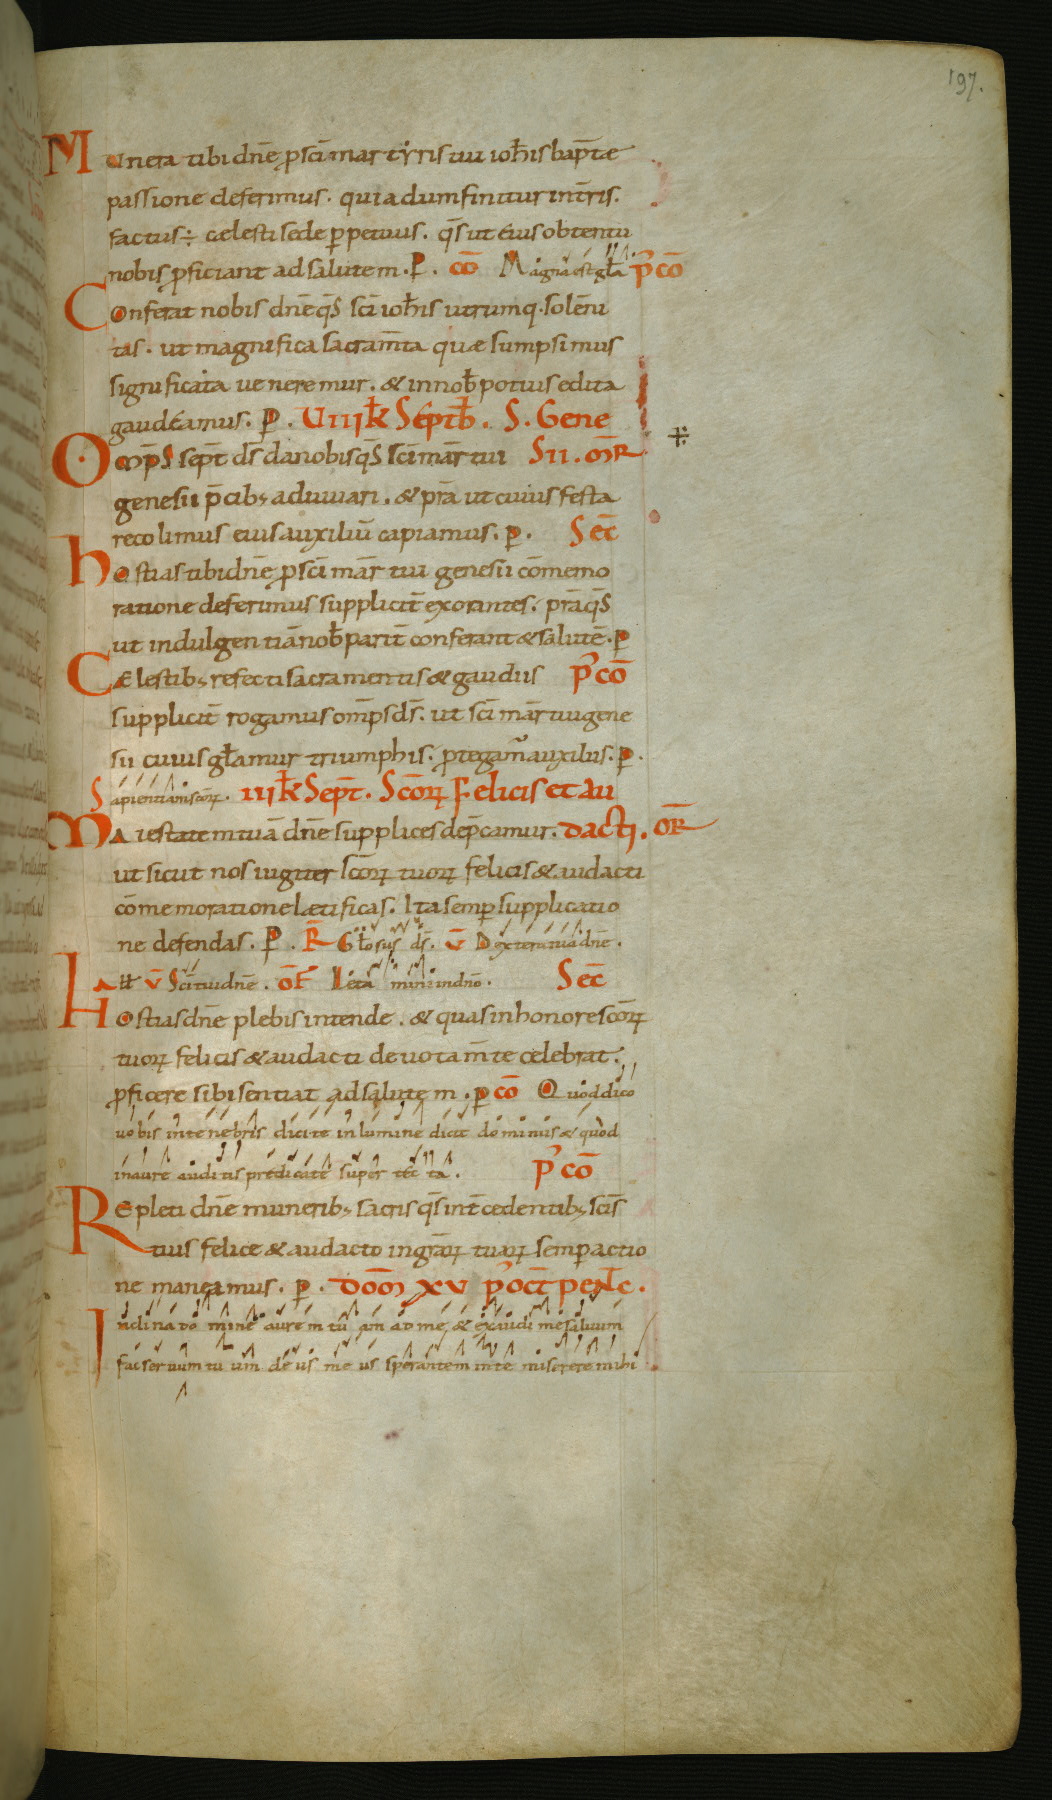 197.
Munera tibi dn̄e p̄ sc̄i martẏris tui ioh̄is bapt̄æ
passione deferimus. quia dum finitur in t̄ris.
factus ÷ cælesti sede ꝑpetuus. q̄s ut eius obtentu
nobis ꝓficiant ad salutem. P. cō Magna est gl̄a p̄ cō
Conferat nobis dn̄e q̄s sc̄i ioh̄is utrumq. solēni
tas. ut magnifica sacram̄ta quæ sumpsimus
significata ueneremur. & in nob̄ potius edita
gaudeamus. P. VIIII k̄ Septb̄. S. Gene
Omp̄s sept̄ ds̄ da nobis q̄s sc̄i mār tui SII. OR̄
genesii p̄cib; adiuuari. & pr̄a ut cuius festa
recolimus eius auxiliū capiamus. p. Sec̄
Hostias tibi dn̄e ꝓ sc̄i mār tui genesii cōmemo
ratione deferimus supplicit̄ exorantes. pr̄a q̄s
ut indulgentiā nob̄ parit̄ conferant & salutē. p
Cælestib; refecti sacramentis & gaudiis p̄ cō
supplicit̄ rogamus omp̄s ds̄. ut sc̄i mār tui gene
sii cuius gl̄amur triumphis. ꝓtegam̄ auxiliis. p.
Sapientiam sc̄oꝝ. IIII k̄ Sept̄. Sc̄oꝝ Felicis et au
Maiestatem tuā dn̄e supplices dep̄camur. dacti. OR̄
ut sicut nos iugiter sc̄oꝝ tuoꝝ felicis & audacti
cōmemoratione lætificas. Ita semꝑ supplicatio
ne defendas. P. R̄ Gl̄osus ds̄. v̄ Dextera tua dn̄e.
All̄ v̄ Sc̄i tui dn̄e. of̄ Letamini in dn̄o. Sec̄
Hostias dn̄e plebis intende. & quas in honore sc̄oꝝ
tuoꝝ felicis & audacti deuota m̄te celebrat.
ꝓficere sibi sentiat ad salutem. p cō Quod dico
uobis in tenebris dicite in lumine dicit dominus & quod
in aure auditis predicate super tecta. p̄ cō
Repleti dn̄e munerib; sacris q̄s int̄cedentib; sc̄is
tuis felice & audacto in gr̄aꝝ tuaꝝ semꝑ actio
ne maneamus. p. DOM̄ XV p̄ oct̄ penc̄.
Inclina domine aurem tuam ad me & exaudi me saluum
fac seruum tuum deus meus sperantem in te miserere mihi